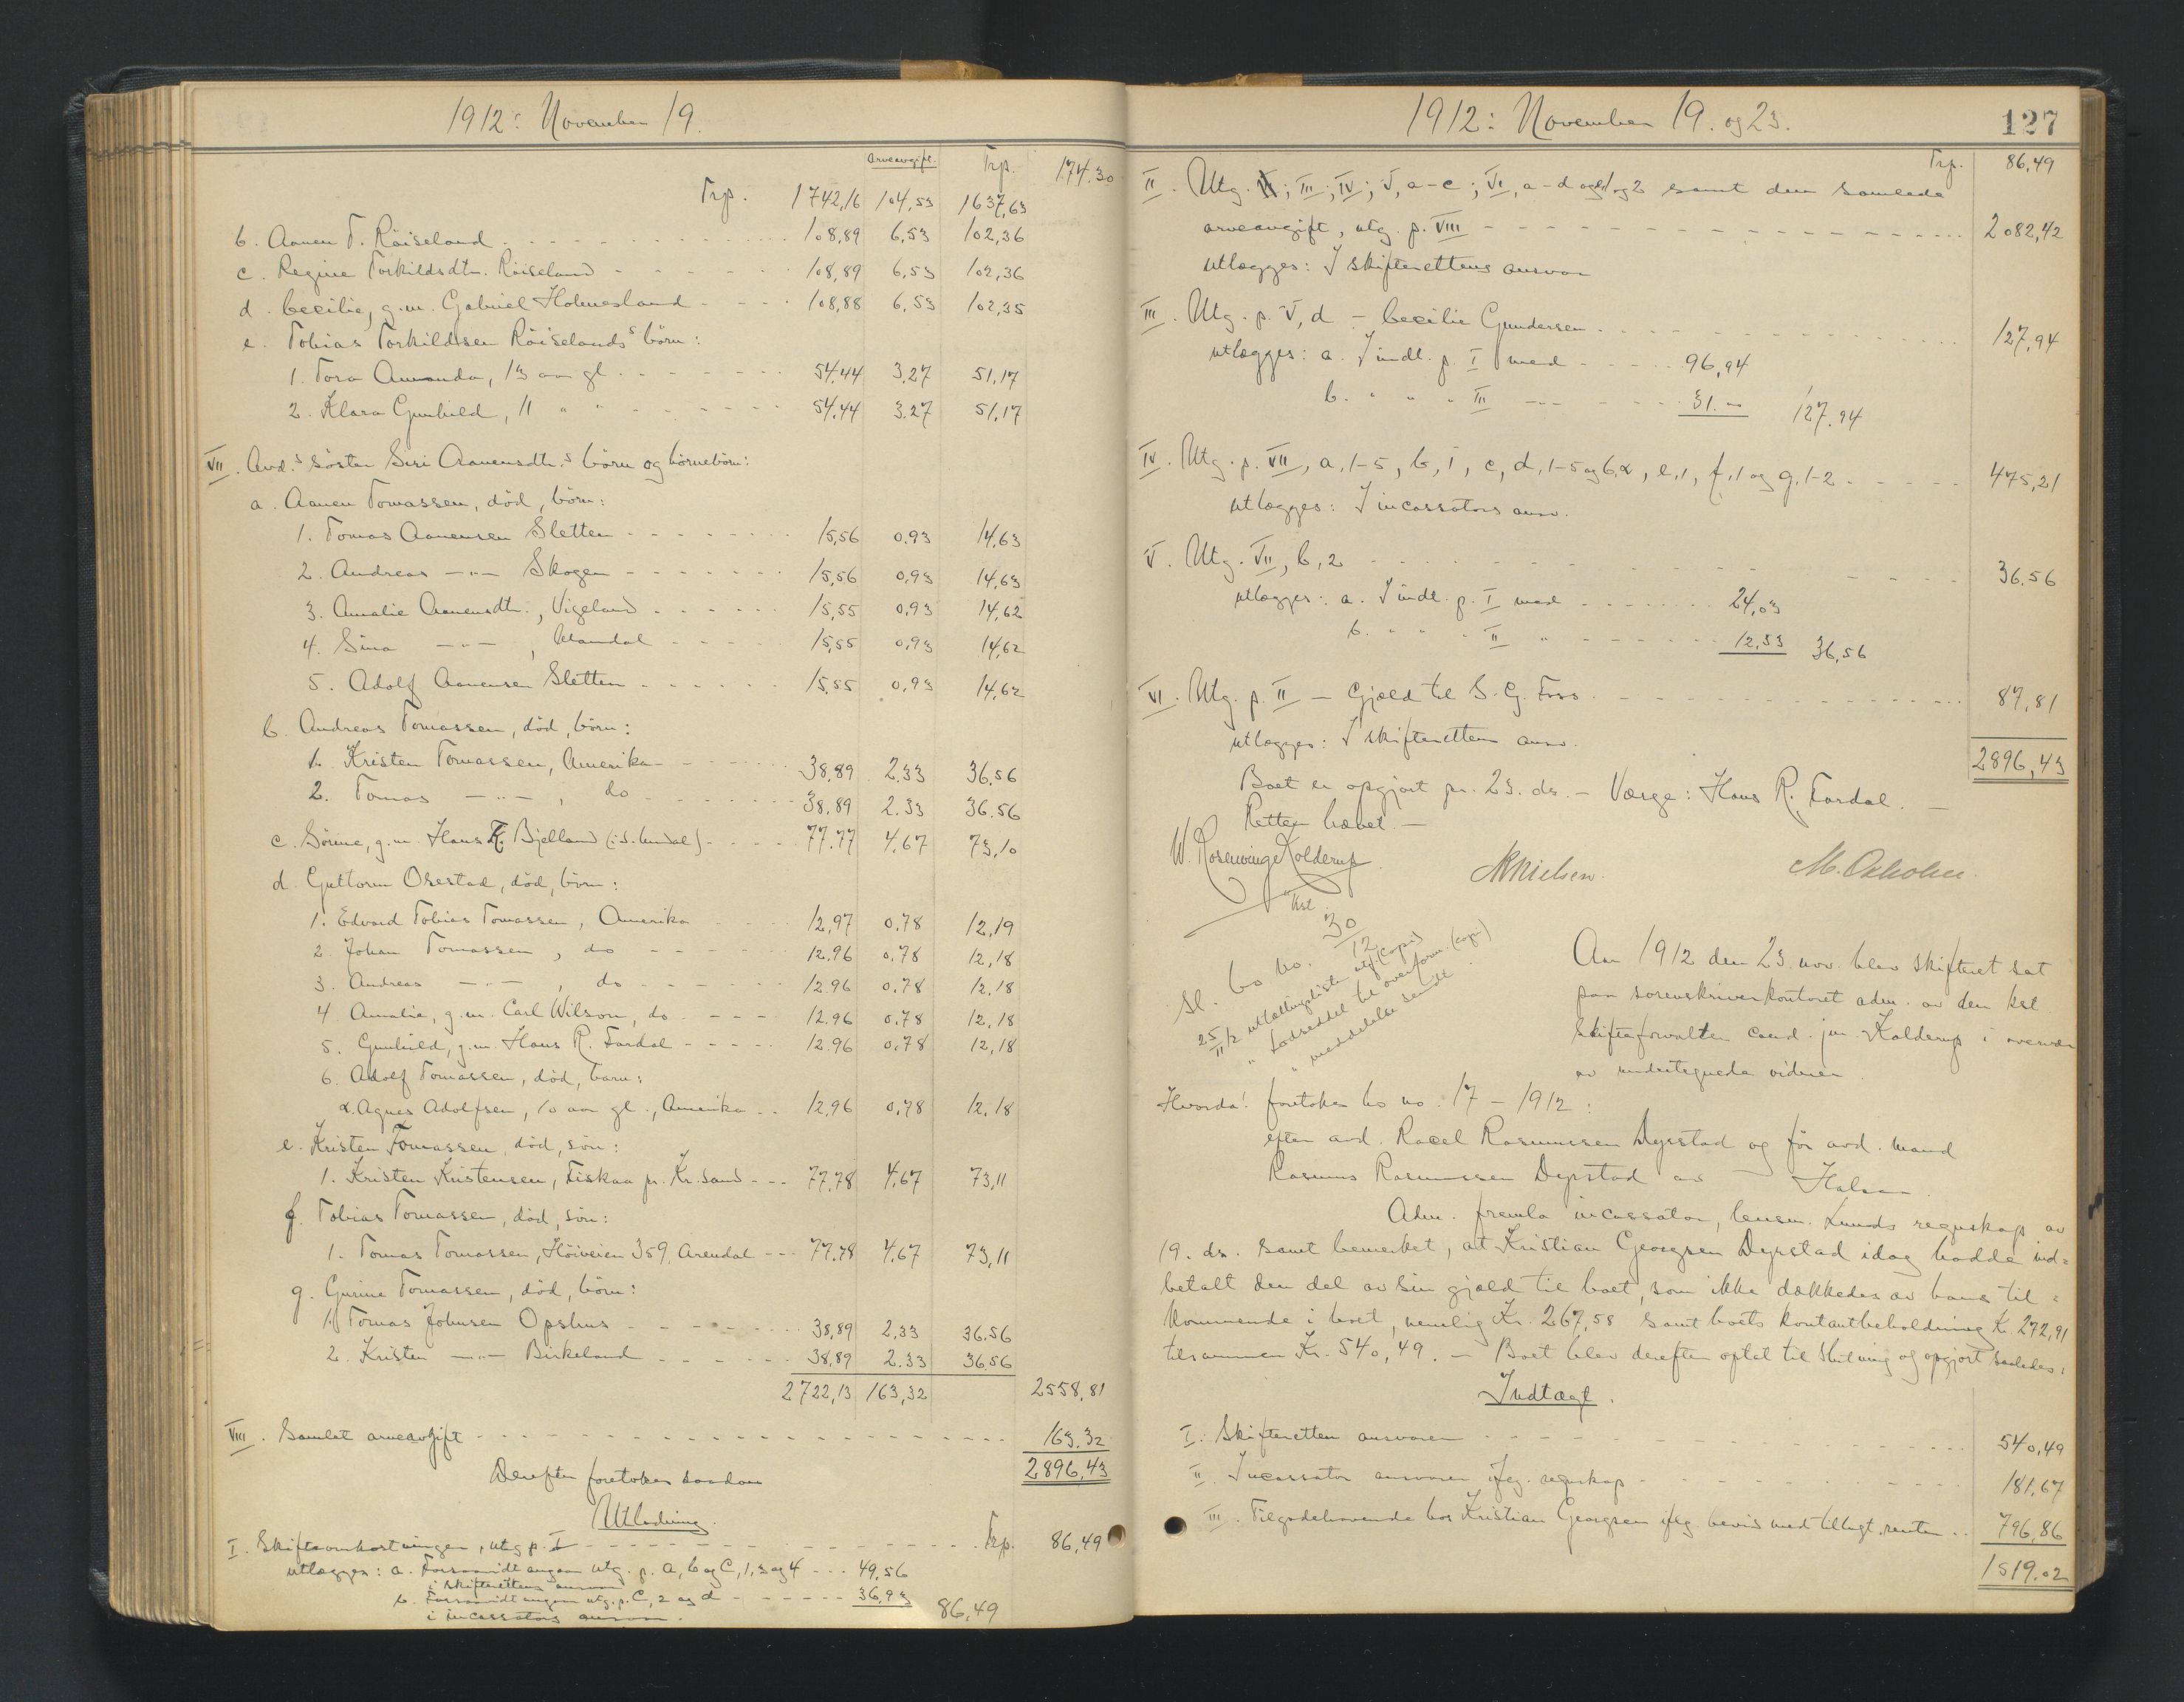 1912: November 19.
arveavgift. Trp. 174.30
Trp. 1742,16 104,53 1637,63
b. Aanen T. Röiseland 108,89 6,53 102,36
c. Regine Torkildsdtr. Röiseland 108,89 6,53 102,36
d. Cecilie, g.m. Gabriel Holmesland 108,88 6,53 102,35
e. Tobias Torkildsen Röiselands börn:
1. Tora Amanda, 13 aar gl. 54,44 3,27 51,17
2. Klara Gunhild, 11 " " 54,44 3.27 51,17
VII. Avd.s söster Siri Aanensdtr.s börn og börnebörn:
a. Aanen Tomassen, död, börn:
1. Tomas Aanensen Sletten 15,56 0.93 14,63
2. Andreas —"— Skogen 15,56 0,93 14,63
3. Amalie Aanensdtr., Vigeland 15,55 0,93 14,62
4. Sina —"—, Mandal 15,55 0,93 14,62
5. Adolf Aanensen Sletten 15,55 0,93 14,62
b. Andreas Tomassen, död, börn:
1. Kristen Tomassen, Amerika 38,89 2.33 36.56
2. Tomas —"—, do 38,89 2.33 36.56
c. Sörine, g.m. Hans K. Bjelland (i S. Undal) 77.77 4,67 73,10
d. Guttorm Orestad, död, börn:
1. Edvard Tobias Tomassen, Amerika 12,97 0.78 12,19
2. Johan Tomassen, do 12.96 0,78 12,18
3. Andreas —"—, do 12.96 0,78 12,18
4. Amalie, g.m. Carl Wilson, do 12.96 0,78 12,18
5. Gunhild, g.m. Hans R. Fardal 12.96 0,78 12,18
6. Adolf Tomassen, död, barn:
α. Agnes Adolfsen, 10 aar gl., Amerika 12,96 0,78 12,18
e. Kristen Tomassen, död, sön:
1. Kristen Kristensen, Fiskaa pr. Kr.sand 77,78 4,67 73,11
f. Tobias Tomassen, död, sön:
1. Tomas Tomassen, Höiveien 359, Arendal 77.78 4,67 73,11
g. Gurine Tomassen, död, börn:
1. Tomas Johnsen Opshus 38,89 2,33 36.56
2. Kristen —"— Birkeland 38,89 2.33 36,56
2722,13 163,32 2558,81
VIII. Samlet arveavgift 163.32
2896,43
Derefter foretokes saadan
Utlodning.
I. Skifteomkostninger, utg p. I Trp. 86,49
utlægges: a. Forsaavidt angaar utg. p. a, b og C, 1, 3 og 4 49,56
i skifterettens ansvar
b. Forsaavidt angaar utg. p. C, 2 og d 36,93 86,49
i incassators ansvar.
1912: November 19. og 23.
127
Trp. 86,49
II. Utg. III; IV; V, a-c; VI, a-d og e1 og 2 samt den samlede
arveavgift, utg. p. VIII 2082,42
utlægges: I skifterettens ansvar
III. Utg. p. V, d - Cecilie Gundersen 127,94
utlægges: a. I indt. p. I med 96,94
b. " " " III — 31.— 127.94
IV. Utg. p. VII, a, 1-5, b, 1, c, d, 1-5 og 6,α, e,1, f,1 og g, 1-2 475,21
utlægges: I incassators ansv.
V. Utg. VII, b, 2 36.56
utlægges: a. I indt. p. I med 24,03
b. " " " II " 12,53 36,56
VI. Utg. p. II — Gjæld til S. G. Foss 87,81
utlægges: I skifteretten ansv.
2896,43
Boet er opgjort pr. 23. ds. — Værge: Hans R. Fardal. —
Retten hævet. —
W. Rosenvinge Kolderup
kst.
NNielsen.
M. Oxholm.
30
12
Sl. bo no.
25/11 12 utlodningsliste utf. (copi)
" Lodseddel til overform. (copi)
" meddelelse sendt
Aar 1912 den 23. nov. blev skifteret sat
paa sorenskriverkontoret adm. av den kst.
skifteforvalter cand. jur. Kolderup i overvær
av undertegnede vidner
Hvorda! foretokes bo no. 17 - 1912:
efter avd. Racel Rasmussen Dyrstad og för avd. mand
Rasmus Rasmussen Dyrstad av Halsaa.
Adm. fremla incassator, lensm. Lunds regnskap av
19. ds. samt bemerket, at Kristian Georgsen Dyrstad idag hadde ind=
betalt den del av sin gjæld til boet, som ikke dækkedes av hans til=
kommende i boet, nemlig Kr. 267,58 samt boets kontantbeholdning Kr. 272,91
tilsammen Kr. 540,49. — Boet blev derefter optat til slutning og opgjort saaledes:
Indtægt.
I. Skifteretten ansvarer 540,49
II. Incassator ansvarer iflg. regnskap 181,67
III. Tilgodehavende hos Kristian Georgsen iflg. bevis med tillagt renter 796,86
1519.02